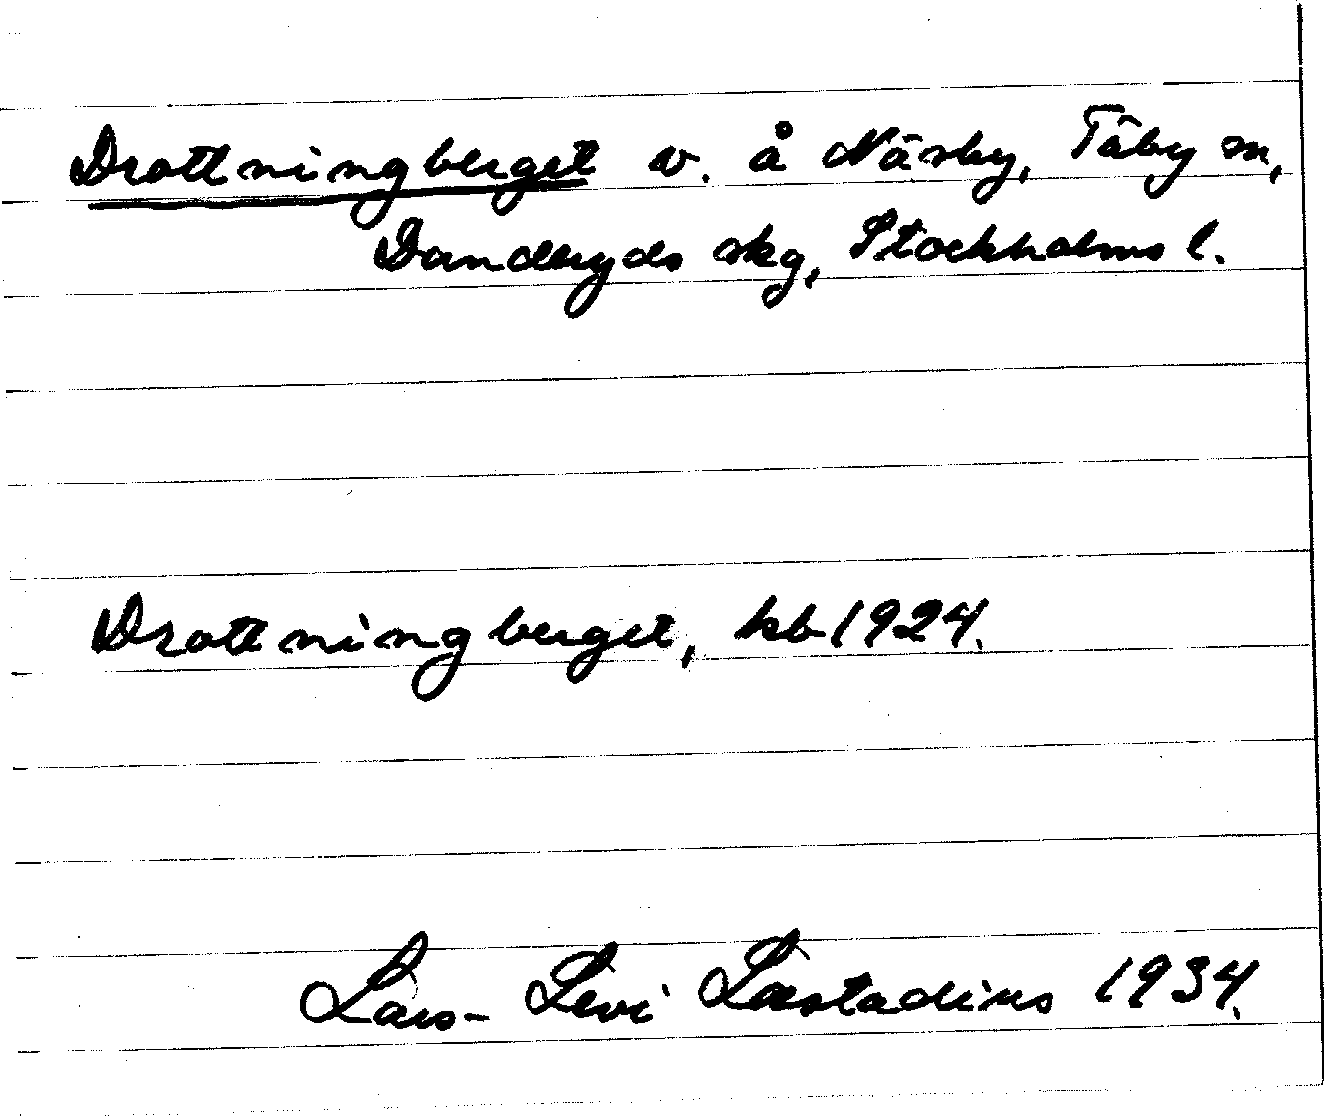 Drottningberget v. å Näsby, Täby sn,
Danderyds skg, Stockholms l.
Drottningberget, kb 1924.
Lars-Levi Læstadius 1934.